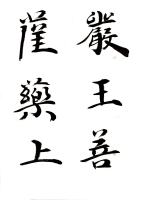 嚴王菩
薩藥上